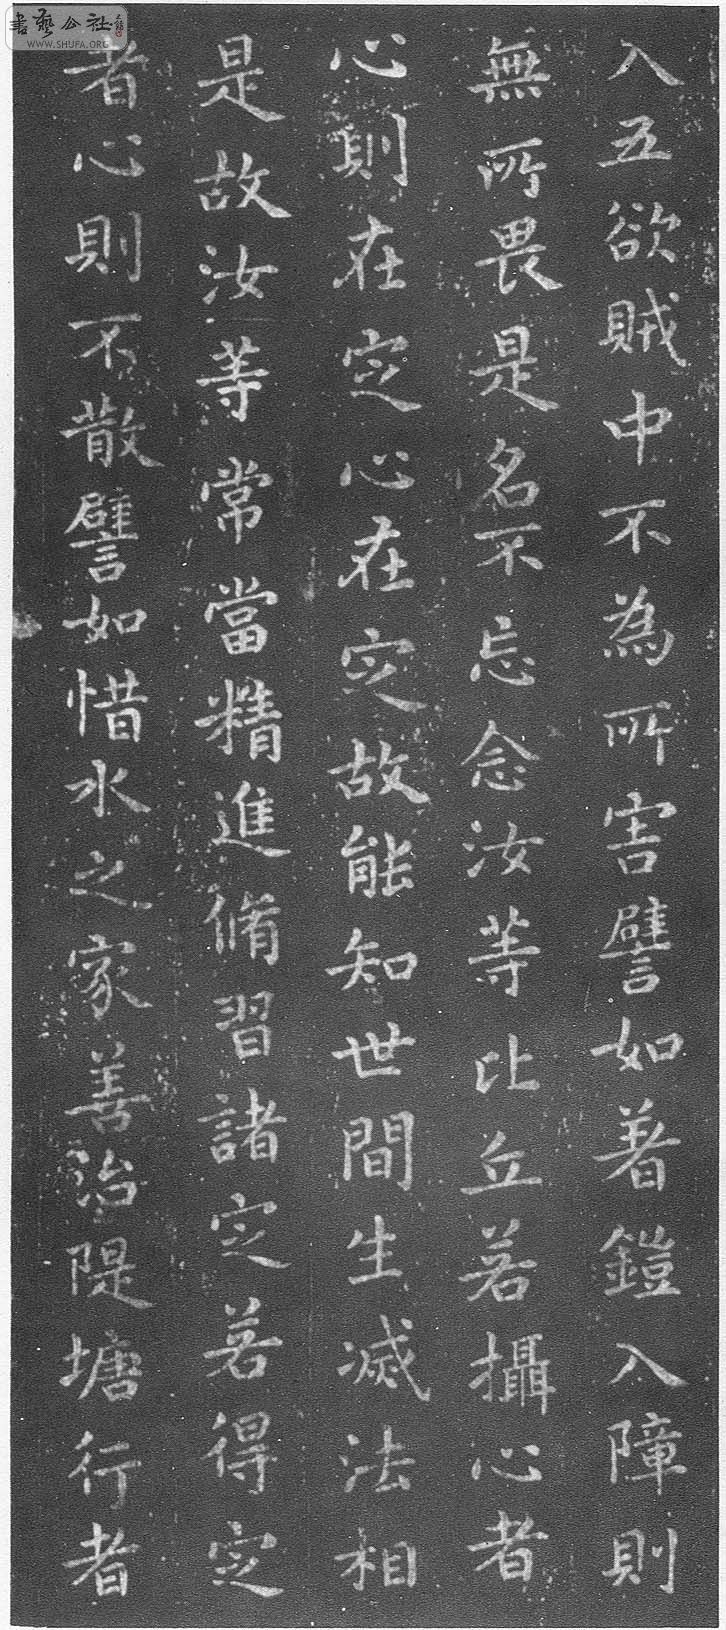 書藝公社
WWW.SHUFA.ORG
入五欲賊中不為所害譬如著鎧入障則
無所畏是名不忘念汝等比丘若攝心者
心則在定心在定故能知世間生滅法相
是故汝等常當精進脩習諸定若得定
者心則不散譬如惜水之家善治隄塘行者